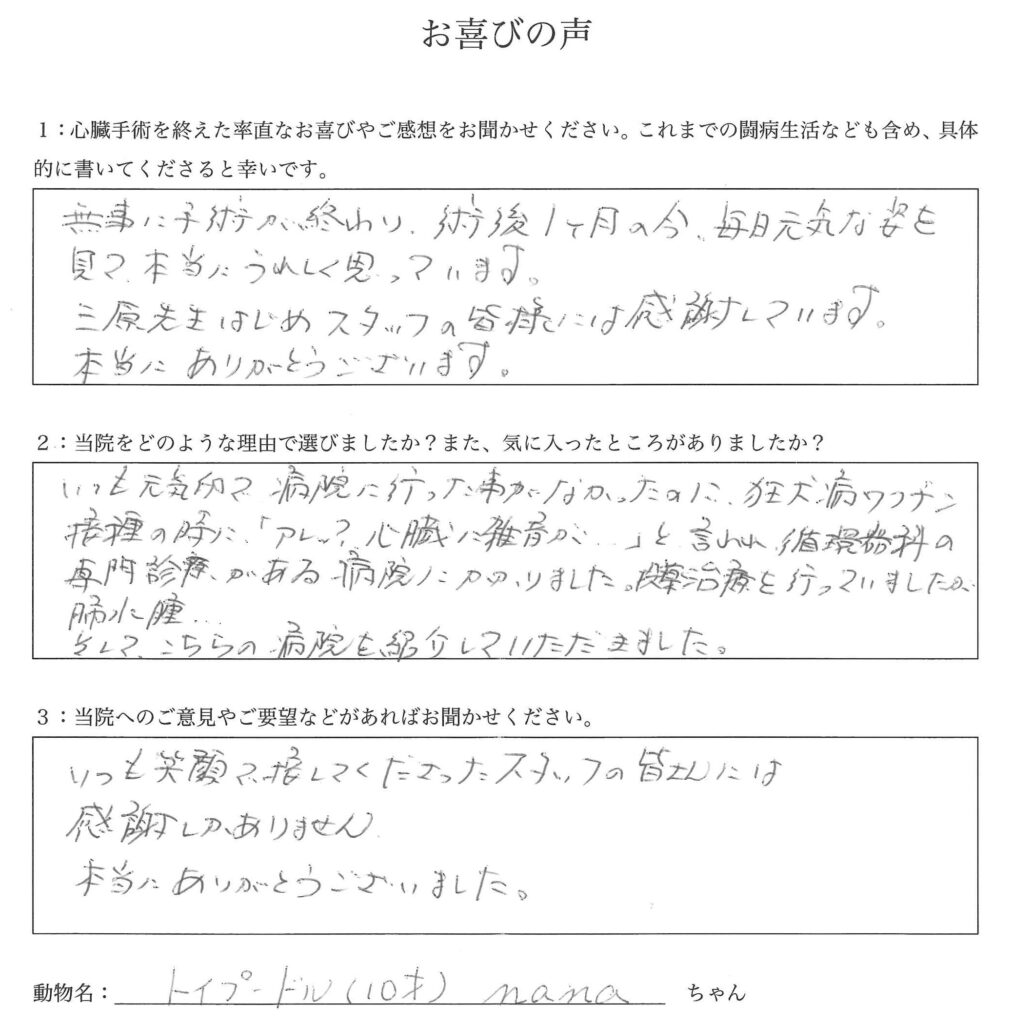 お喜びの声
1：心臓手術を終えた率直なお喜びやご感想をお聞かせください。これまでの闘病生活なども含め、具体
的に書いてくださると幸いです。
無事に手術が終わり、術後1ヶ月の今、毎日元気な姿を
見て、本当にうれしく思っています。
三原先生はじめスタッフの皆様には感謝しています。
本当にありがとうございます。
2：当院をどのような理由で選びましたか？また、気に入ったところがありましたか？
いつも元気印で、病院に行った事がなかったのに、狂犬病ワクチン
接種の時に、「アレッ？心臓に雑音が…」と言われ、循環器科の
専門診療がある病院にかかりました。投薬治療を行っていましたが、
肺水腫…
そして、こちらの病院を紹介していただきました。
3：当院へのご意見やご要望などがあればお聞かせください。
いつも笑顔で接してくださったスタッフの皆さんには
感謝しかありません
本当にありがとうございました。
動物名：トイプードル(10才) nana ちゃん